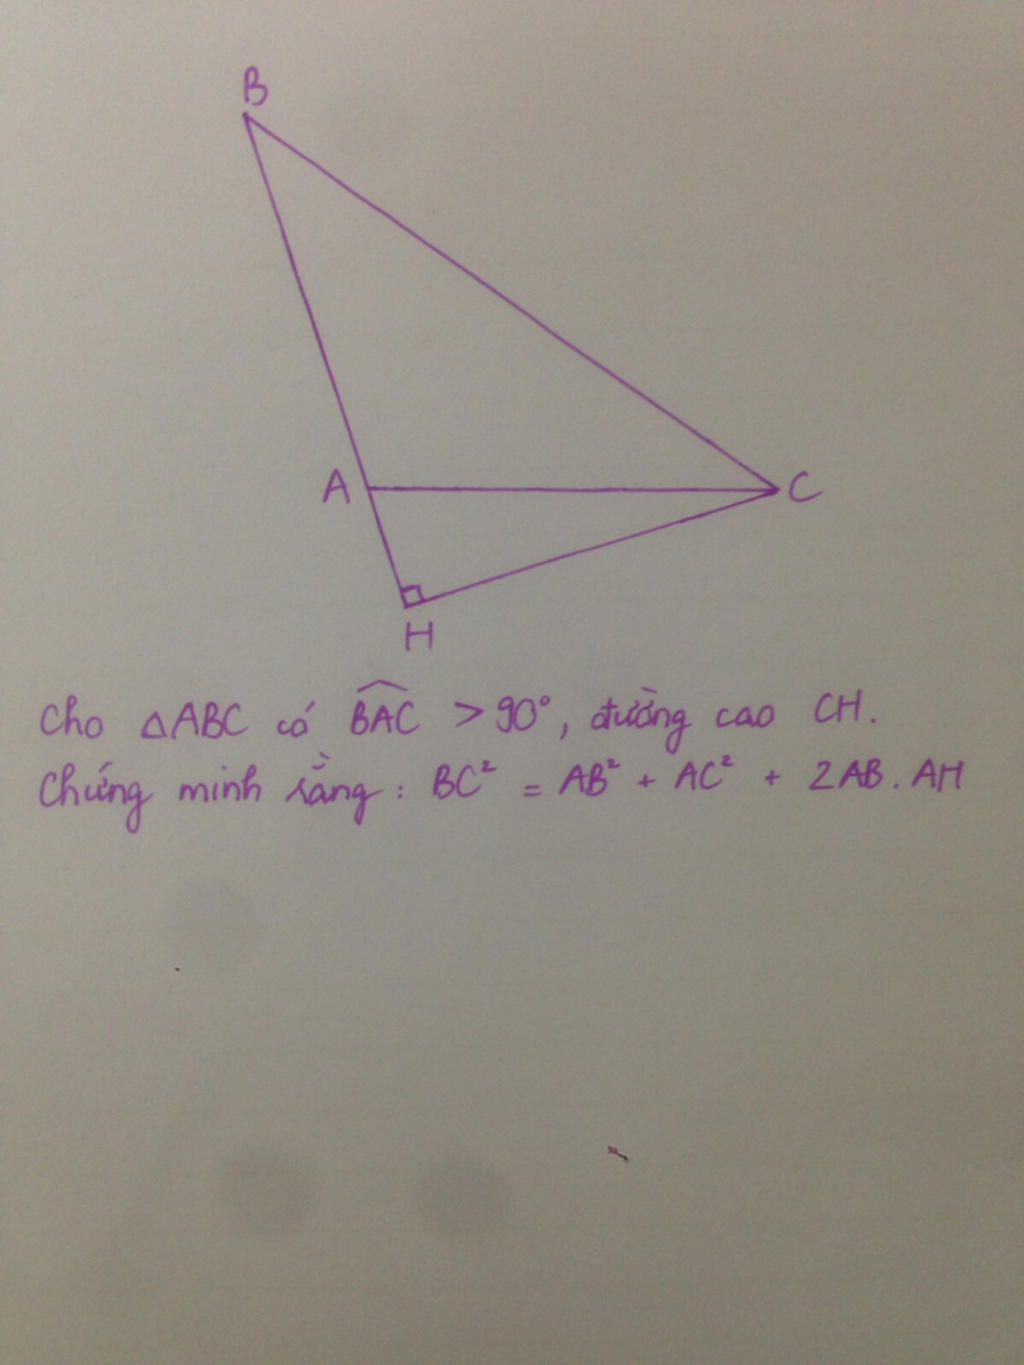 B
A
C
H
Cho △ABC có \widehat{BAC} > 90°, đường cao CH.
Chứng minh rằng: BC² = AB² + AC² + 2AB.AH